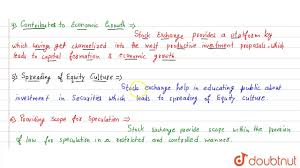 4) Contributes to Economic Growth ⇒
Stock Exchange provides a platform by
which savings get channelized into the most productive investment proposals, which
leads to capital formation & economic growth.
5) Spreading of Equity Culture ⇒
Stock exchange help in educating public about
investment in Securities which leads to spreading of Equity culture.
6) Providing scope for speculation ⇒
Stock Exchange provide scope within the provision
of law for speculation in a restricted and controlled manner.
doubtnut